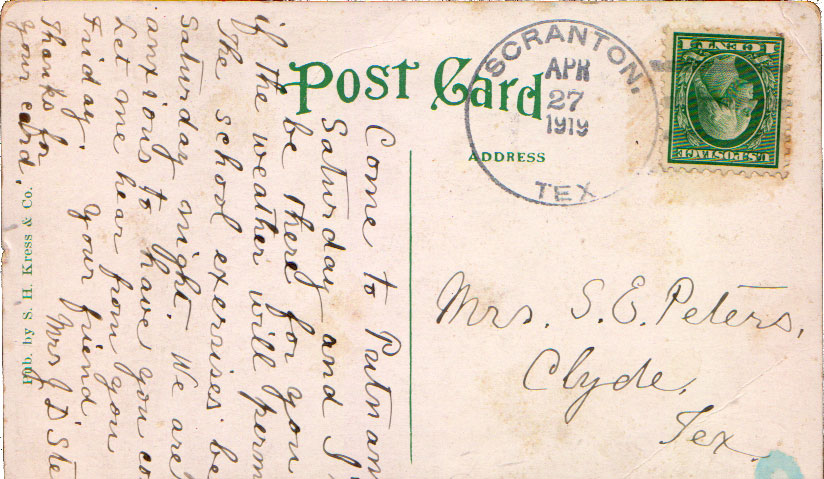 POST CARD
ADDRESS
SCRANTON,
APR
27
1919
TEX
1 CENT 1
U.S. POSTAGE
Mrs. S. E. Peters,
Clyde,
Tex
Come to Putnam
Saturday and I'
be there for you
if the weather will perm
The school exersises be
Saturday night. We are
anxious to have you co
Let me hear from you
Friday. Your friend
Thanks for Mrs J D Ste
your card,
Pub. by S. H. Kress & Co.